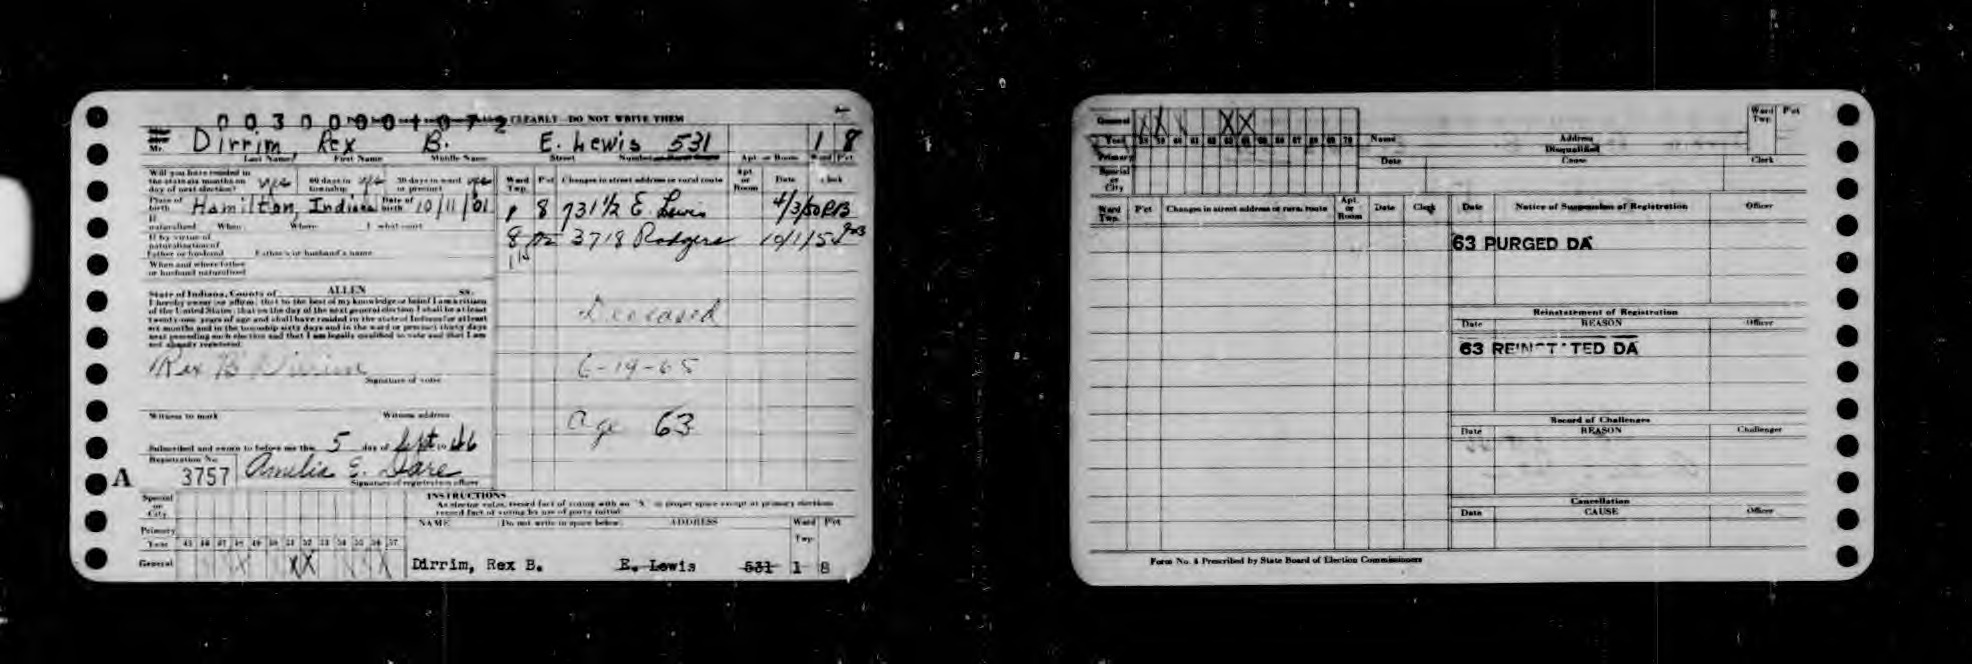 00300001072 CLEARLY DO NOT WRITE THEM
Mr. Dirrim, Rex B. E. Lewis 531 1 8
Last Name First Name Middle Name Street Number Apt. or Room Ward Pct.
Will you have resided in the state six months on day of next election? yes 60 days in township yes 30 days in ward or precinct yes
Place of birth Hamilton, Indiana Date of birth 10/11/01
If naturalized When Where what court
If by virtue of naturalization of Father or husband Father's or husband's name
When and where father or husband naturalized
State of Indiana, County of ALLEN SS.
I hereby swear (or affirm) that to the best of my knowledge or belief I am a citizen
of the United States; that on the day of the next general election I shall be at least
twenty-one years of age and shall have resided in the state of Indiana for at least
six months and in the township sixty days and in the ward or precinct thirty days
next preceding such election and that I am legally qualified to vote and that I am
not already registered.
Rex B Dirrim
Signature of voter
Witness to mark Witness address
Subscribed and sworn to before me this 5 day of Sept 1946
Registration No.
A 3757 Amelia E. Dare
Signature of registration officer
Ward Twp. Pct Changes in street address or rural route Apt. or Room Date Clerk
1 8 731 1/2 E. Lewis 4/3/50 RB
8 3718 Rodgers 10/1/5
Deceased
6-19-65
Age 63
Special or City
Primary
Year 45 46 47 48 49 50 51 52 53 54 55 56 57
General X X X X
INSTRUCTIONS
As elector votes, record fact of voting with an "X" in proper space except at primary elections
record fact of voting by use of party initial
NAME Do not write in space below ADDRESS Ward Twp. Pct
Dirrim, Rex B. E. Lewis 531 1 8
General X X X X
Year 58 59 60 61 62 63 64 65 66 67 68 69 70
Primary
Special or City
Name Address Ward Twp. Pct
Disqualified
Date Cause Clerk
Ward Twp. P'ct Changes in street address or rural route Apt. or Room Date Clerk
Date Notice of Suspension of Registration Officer
63 PURGED DA
Reinstatement of Registration
Date REASON Officer
63 REINSTATED DA
Record of Challenges
Date REASON Challenger
Cancellation
Date CAUSE Officer
Form No. 4 Prescribed by State Board of Election Commissioners